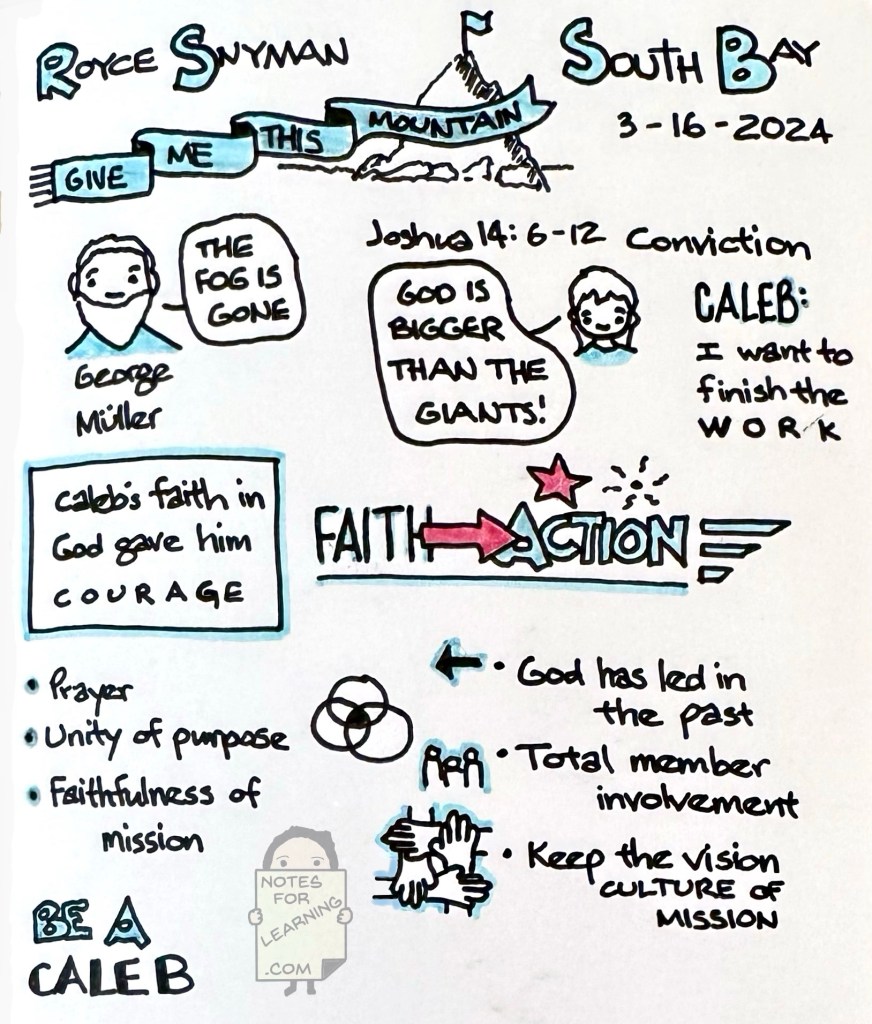 ROYCE SNYMAN
SOUTH BAY
3-16-2024
GIVE ME THIS MOUNTAIN
THE
FOG IS
GONE
George
Müller
Joshua 14: 6-12 Conviction
GOD IS
BIGGER
THAN THE
GIANTS!
CALEB:
I want to
finish the
WORK
Caleb's faith in
God gave him
COURAGE
FAITH ACTION
• Prayer
• Unity of purpose
• Faithfulness of
mission
• God has led in
the past
• Total member
involvement
• Keep the vision
CULTURE OF
MISSION
BE A
CALEB
NOTES
FOR
LEARNING
.COM